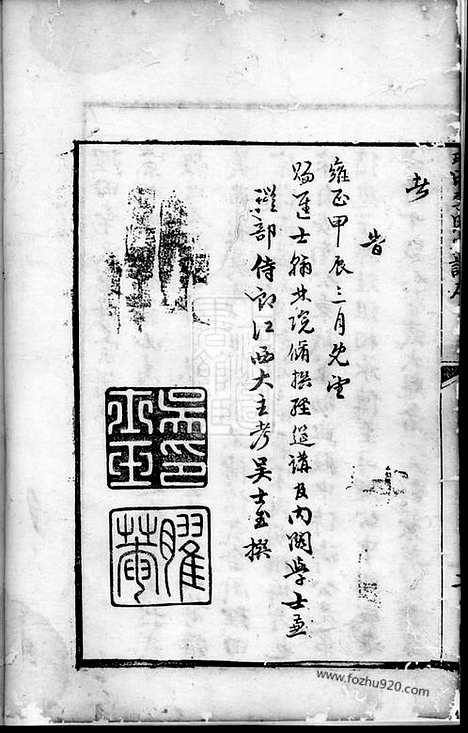 者
旹
雍正甲辰三月先望
賜進士翰林院脩撰經筵講及內閣學士兼
禮部侍郎江西大主考吴士玉撰
吴印士玉
臞菴
www.fozhu920.com